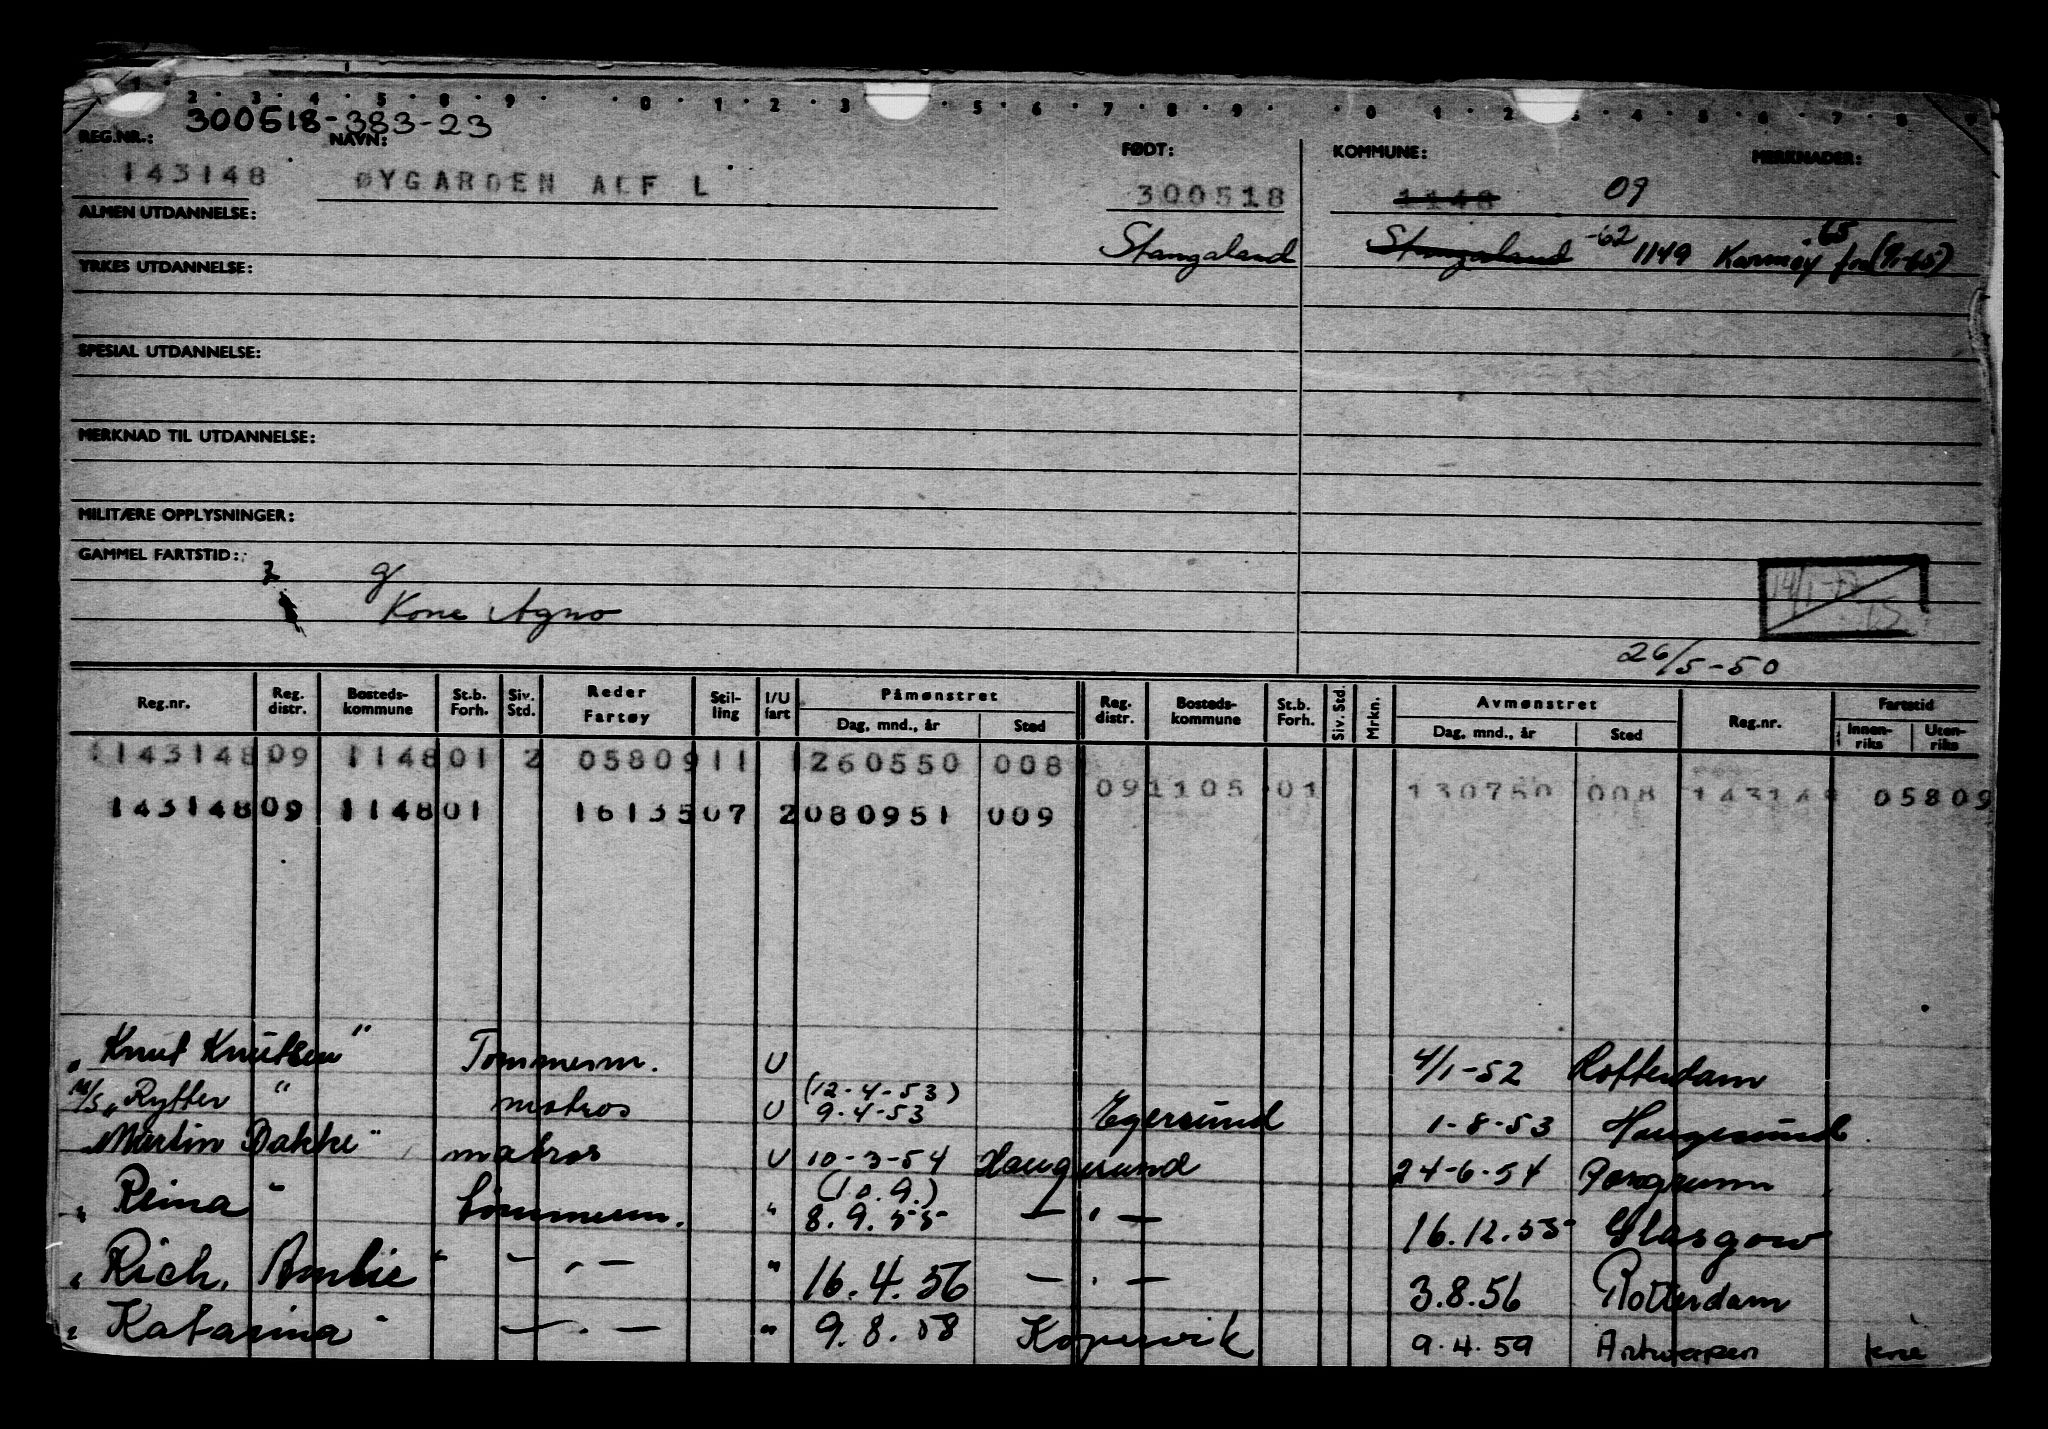 300518-383-23
REG.NR.: NAVN: FØDT: KOMMUNE: MERKNADER:
143148 ØYGARDEN ALF L 300518 1148 09
ALMEN UTDANNELSE:
Stangaland Stangaland -62 1149 Karmøy fra (1/1-65) 65
YRKES UTDANNELSE:
SPESIAL UTDANNELSE:
MERKNAD TIL UTDANNELSE:
MILITÆRE OPPLYSNINGER:
GAMMEL FARTSTID:
g
Kone Agno
26/5-50
Reg.nr. Reg. distr. Bosteds-kommune St.b. Forh. Siv. Std. Reder Fartøy Stil-ling I/U fart Påmønstret Dag, mnd., år Sted Reg. distr. Bosteds-kommune St.b. Forh. Siv. Std. Mrkn. Avmønstret Dag, mnd., år Sted Reg.nr. Fartstid Innen-riks Uten-riks
143148 09 1148 01 2 05809 11 1 260550 008
09 1105 01 130750 008 143148 05809
143148 09 1148 01 16135 07 2 080951 009
"Knut Knutsen" Tømmerm. U 4/1-52 Rotterdam
M/S "Rytter" matros U (12-4-53) 9-4-53 Egersund 1-8-53 Haugesund
"Martin Bakke" matros U 10-3-54 Haugesund 24-6-54 Porsgrunn
"Reina" tømmerm. " (10.9.) 8.9.55 — " — 16.12.55 Glasgow
"Rich. Amlie" — " — " 16.4.56 — " — 3.8.56 Rotterdam
"Katarina" — " — " 9.8.58 Kopervik 9.4.59 Antwerpen